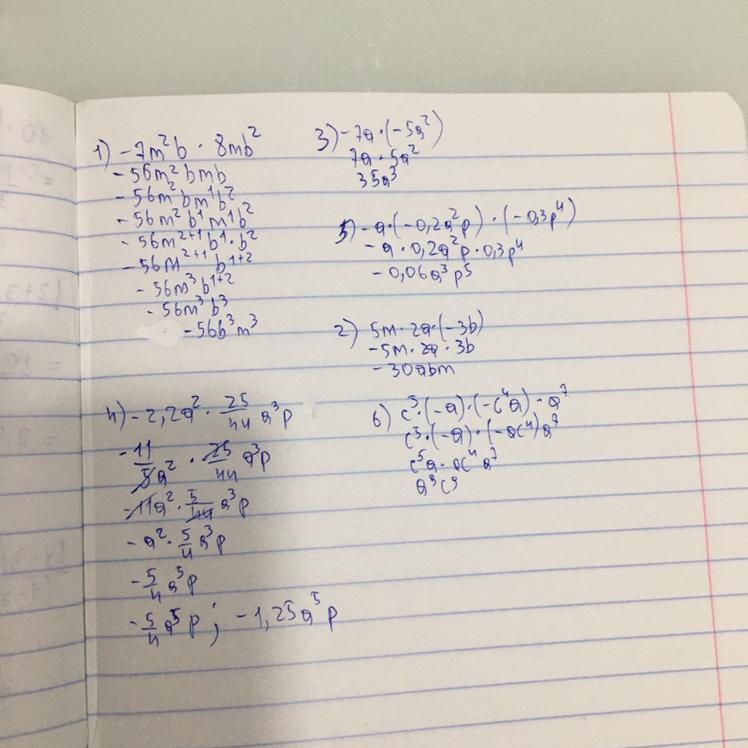 1) -7m²b · 8mb²
-56m²bmb
-56m²bm¹b²
-56m²b¹m¹b²
-56m²⁺¹b¹·b²
-56m²⁺¹ b¹⁺²
-56m³b¹⁺²
-56m³b³
-56b³m³
3) -7a·(-5a²)
7a·5a²
35a³
5) -a·(-0,2a²p)·(-0,3p⁴)
-a·0,2a²p·0,3p⁴
-0,06a³p⁵
2) 5m·2a·(-3b)
-5m·2a·3b
-30abm
4) -2,2a² · 25/44 a³p
-11/5 a² · 25/44 a³p
-11a² · 5/44 a³p
-a² · 5/4 a³p
-5/4 a⁵p
-5/4 a⁵p ; -1,25a⁵p
6) c⁵·(-a)·(-c⁴a)·a⁷
c⁵·(-a)·(-ac⁴)a⁷
c⁵a·ac⁴a⁷
a⁹c⁹